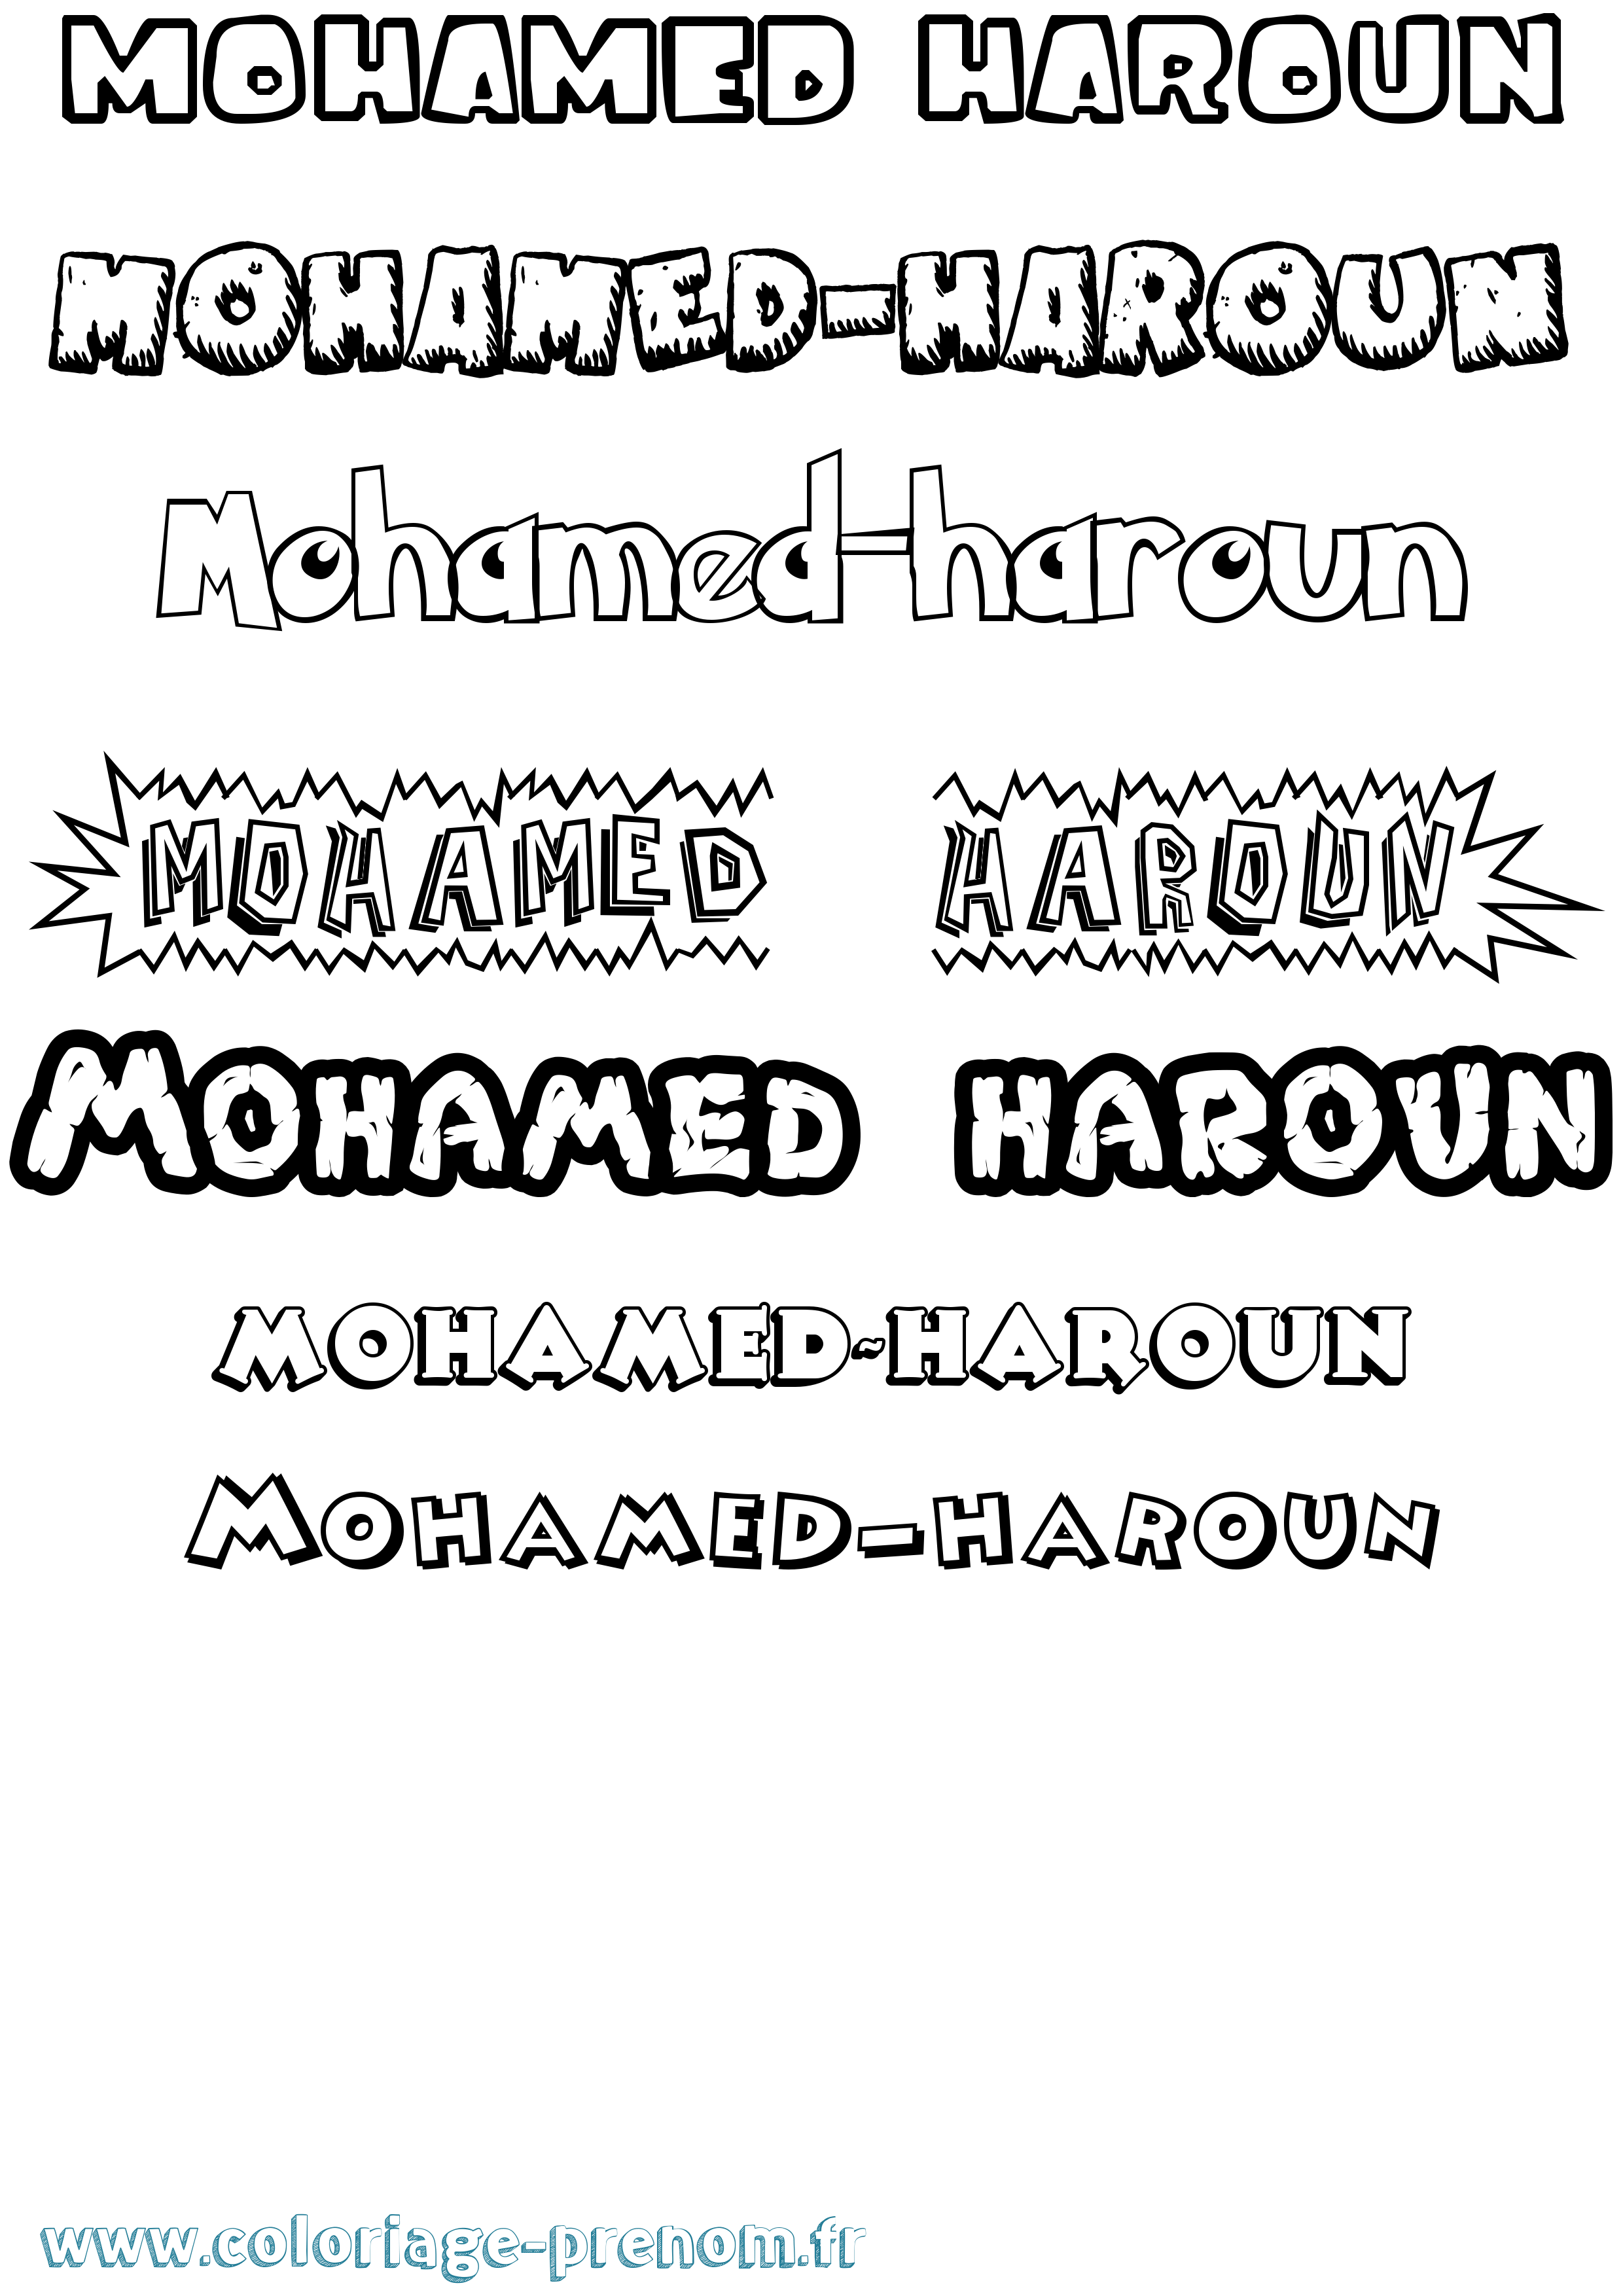 MOHAMED HAROUN
MOHAMED-HAROUN
Mohamed-haroun
MOHAMED HAROUN
MOHAMED HAROUN
MOHAMED-HAROUN
MOHAMED-HAROUN
www.coloriage-prenom.fr